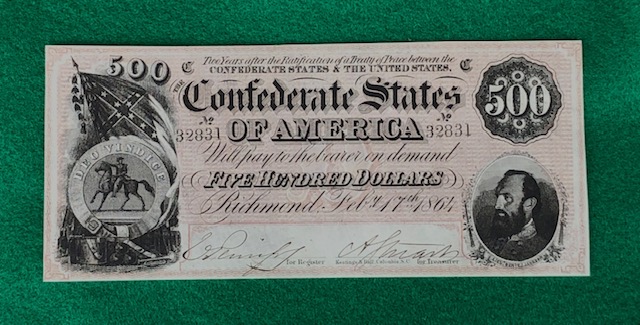 500 C Two Years after the Ratification of a Treaty of Peace between the C
CONFEDERATE STATES & THE UNITED STATES,
THE Confederate States 500
No No
32831 OF AMERICA 32831
Will pay to the bearer on demand
DEO VINDICE
FIVE HUNDRED DOLLARS
Richmond, Feby. 17th 1864
for Register Keatinge & Ball, Columbia, S.C. for Treasurer